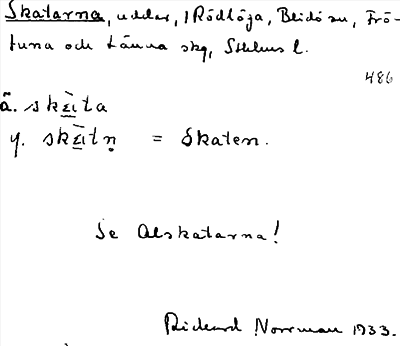 Skatarna, uddar, i Rödlöja, Blidö sn, Frö-
tuna och Länna skg, Sthlms l.
486
ä. skɛ̀ita
y. skɛ̀itn̥ = Skaten.
Se Alskatarna!
Rickard Norrman 1933.